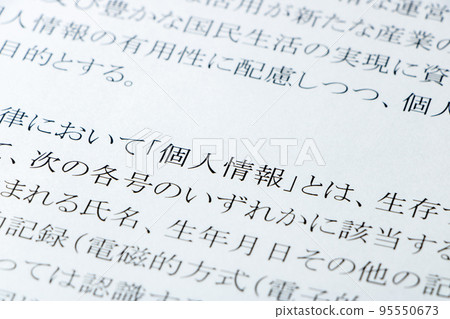 活用が新たな産業の
及び豊かな国民生活の実現に資
人情報の有用性に配慮しつつ、個人
目的とする。
律において「個人情報」とは、生存
て、次の各号のいずれかに該当する
まれる氏名、生年月日その他の記
記録（電磁的方式（電子的
っては認識す
PIXTA
95550673